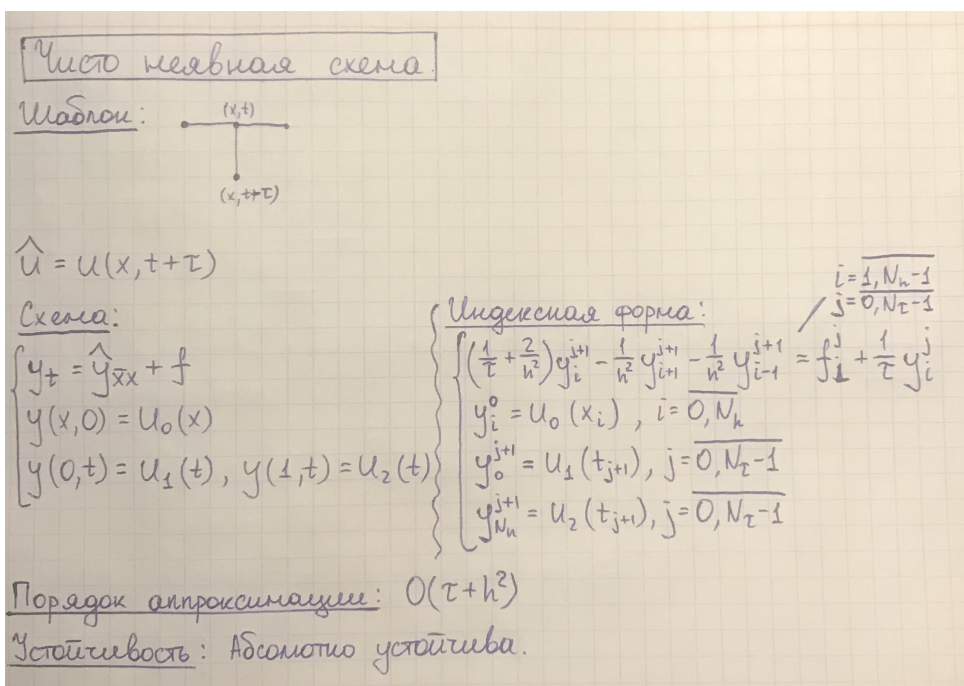 Чисто неявная схема.
Шаблон:
(x,t)
(x,t+τ)
û = u(x,t+τ)
Схема:
y_t = ŷ_x̄x + f
y(x,0) = u_0(x)
y(0,t) = u_1(t), y(1,t) = u_2(t)
Индексная форма:
i = \overline{1, N_h-1}
j = \overline{0, N_τ-1}
(1/τ + 2/h²) y_i^{j+1} - 1/h² y_{i+1}^{j+1} - 1/h² y_{i-1}^{j+1} = f_i^j + 1/τ y_i^j
y_i^0 = u_0(x_i), i = \overline{0, N_h}
y_0^{j+1} = u_1(t_{j+1}), j = \overline{0, N_τ-1}
y_{N_h}^{j+1} = u_2(t_{j+1}), j = \overline{0, N_τ-1}
Порядок аппроксимации: O(τ+h²)
Устойчивость: Абсолютно устойчива.